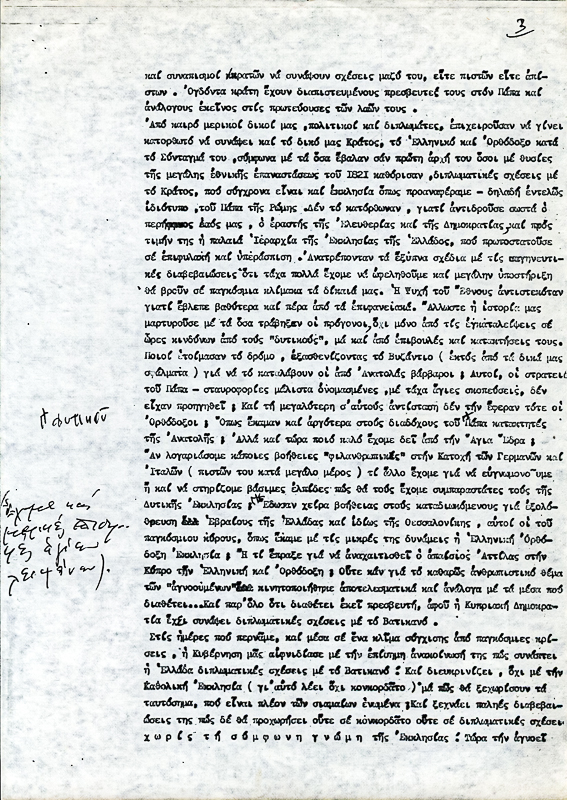 3
καί συναπισμοί κρατῶν νά συνάψουν σχέσεις μαζύ του, εἴτε πιστῶν εἴτε ἀπί-
στων . Ὀγδόντα κράτη ἔχουν διαπιστευμένους πρεσβευτές τους στόν Πάπα καί
ἀνάλογους ἐκεῖνος στίς πρωτεύουσες τῶν λαῶν τους .
Ἀπό καιρό μερικοί δικοί μας ,πολιτικοί καί διπλωμάτες, ἐπιχειροῦσαν νά γίνει
κατορθωτό νά συνάψει καί τό δικό μας Κράτος, τό Ἑλληνικό καί Ὀρθόδοξο κατά
τό Σύνταγμά του ,σύμφωνα μέ τά ὅσα ἔβαλαν σάν πρώτη ἀρχή του ὅσοι μέ θυσίες
τῆς μεγάλης ἐθνικῆς ἐπαναστάσεως τοῦ 1821 καθόρισαν ,διπλωματικές σχέσεις μέ
τό Κράτος, πού σύγχρονα εἶναι καί ἐκκλησία ὅπως προαναφέραμε - δηλαδή ἐντελῶς
ἰδιότυπο ,τοῦ Πάπα τῆς Ρώμης .Δέν τό κατόρθωναν , γιατί ἀντιδροῦσε σωστά ὁ
περήφανος λαός μας , ὁ ἐραστής τῆς Ἐλευθερίας καί τῆς Δημοκρατίας καί πρός
τιμήν της ἡ παλαιά Ἱεραρχία τῆς Ἐκκλησίας τῆς Ἑλλάδος, πού πρωτοστατοῦσε
σέ ἐπιφυλακή καί ὑπεράσπιση . Ἀνατρέπονταν τά ἔξυπνα σχέδια μέ τίς σαγηνευτι-
κές διαβεβαιώσεις ὅτι τάχα πολλά ἔχομε νά ὠφεληθοῦμε καί μεγάλην ὑποστήριξη
θά βροῦν σέ παγκόσμια κλίμακα τά δίκαιά μας. Ἡ Ψυχή τοῦ Ἔθνους ἀντιστεκόταν
γιατί ἔβλεπε βαθύτερα καί πέρα ἀπό τά ἐπιφανειακά. Ἄλλωστε ἡ ἱστορία μας
μαρτυροῦσε μέ τά ὅσα τράβηξαν οἱ πρόγονοι,ὄχι μόνο ἀπό τίς ἐγκαταλείψεις σέ
ὧρες κινδύνων ἀπό τούς "δυτικούς", μά καί ἀπό ἐπιβουλές καί κατακτήσεις τους.
Ποιοί ἑτοίμασαν τό δρόμο , ἐξασθενίζοντας τό Βυζάντιο ( ἐκτός ἀπό τά δικά μας
σφάλματα ) γιά νά τό καταλάβουν οἱ ἀπό Ἀνατολάς βάρβαροι ; Αὐτοί, οἱ στρατιές
τοῦ Πάπα - σταυροφορίες μάλιστα ὀνομασμένες ,μέ τάχα ἅγιες σκοπεύσεις, δέν
εἶχαν προηγηθεῖ ; Καί τή μεγαλύτερη σ'αὐτούς ἀντίσταση δέν τήν ἔφεραν τότε οἱ
Ὀρθόδοξοι ; Ὅπως ἔκαμαν καί ἀργότερα στούς διαδόχους τοῦ Πάπα κατακτητές
τῆς Ἀνατολῆς ; Ἀλλά καί τώρα ποιό καλό ἔχομε δεῖ ἀπό τήν Ἁγία Ἕδρα ;
Ἄν λογαριάσομε κάποιες βοήθειες "φιλανθρωπικές" στήν Κατοχή τῶν Γερμανῶν καί
Ἰταλῶν ( πιστῶν του κατά μεγάλο μέρος ) τί ἄλλο ἔχομε γιά νά εὐγνωμονοῦμε
ἤ καί νά στηρίξομε βάσιμες ἐλπίδες πώς θά τούς ἔχομε συμπαραστάτες τούς τῆς
Δυτικῆς Ἐκκλησίας ; Ἔδωσαν χείρα βοήθειας στούς καταδιωκόμενους γιά ἐξολό-
θρευση Ἑβραίους τῆς Ἑλλάδας καί ἰδίως τῆς Θεσσαλονίκης , αὐτοί οἱ τοῦ
παγκοσμίου κύρους, ὅπως ἔκαμε μέ τίς μικρές της δυνάμεις ἡ Ἑλληνική Ὀρθό-
δοξη Ἐκκλησία ; Ἤ τί ἔπραξε γιά νά ἀναχαιτισθεῖ ὁ ἀπαίσιος Ἀττίλας στήν
Κύπρο τήν Ἑλληνική καί Ὀρθόδοξη ; Οὔτε κἄν γιά τό καθαρῶς ἀνθρωπιστικό θέμα
τῶν "ἀγνοουμένων" κινητοποιήθηκε ἀποτελεσματικά καί ἀνάλογα μέ τά μέσα πού
διαθέτει...Καί παρ'ὅλο ὅτι διαθέτει ἐκεῖ πρεσβευτή, ἀφοῦ ἡ Κυπριακή Δημοκρα-
τία ἔχει συνάψει διπλωματικές σχέσεις μέ τό Βατικανό .
Στίς ἡμέρες πού περνᾶμε, καί μέσα σέ ἕνα κλῖμα σύγχισης ἀπό παγκόσμιες κρί-
σεις , ἡ Κυβέρνηση μᾶς αἰφνιδίασε μέ τήν ἐπίσημη ἀνακοίνωσή της πώς συνάπτει
ἡ Ἑλλάδα διπλωματικές σχέσεις μέ τό Βατικανό ! Καί διευκρινίζει , ὄχι μέ τήν
Καθολική Ἐκκλησία ( γι'αὐτό λέει ὄχι κονκορδᾶτο ) μά πῶς θά ξεχωρίσουν τά
ταυτόσημα, πού εἶναι πλέον τῶν σιαμαίων ἑνωμένα ;Καί ξεχνάει παλιές διαβεβαι-
ώσεις της πώς δέ θά προχωρήσει οὔτε σέ κονκορδᾶτο οὔτε σέ διπλωματικές σχέσεις
χωρίς τή σύμφωνη γνώμη τῆς Ἐκκλησίας ! Τώρα τήν ἀγνοεῖ